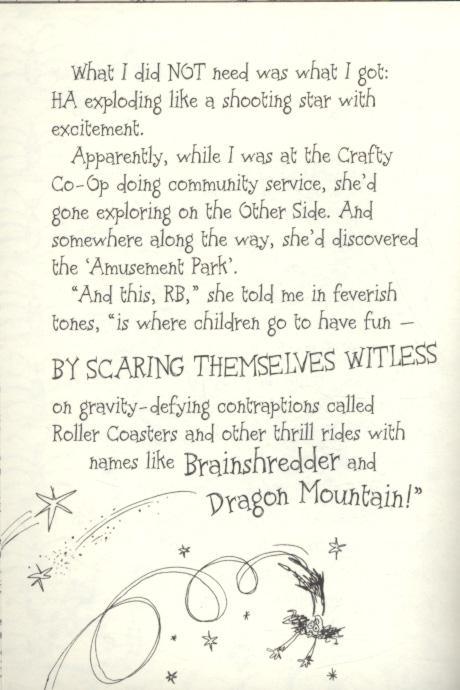 What I did NOT need was what I got:
HA exploding like a shooting star with
excitement.
Apparently, while I was at the Crafty
Co-Op doing community service, she'd
gone exploring on the Other Side. And
somewhere along the way, she'd discovered
the 'Amusement Park'.
"And this, RB," she told me in feverish
tones, "is where children go to have fun –
BY SCARING THEMSELVES WITLESS
on gravity-defying contraptions called
Roller Coasters and other thrill rides with
names like Brainshredder and
Dragon Mountain!"